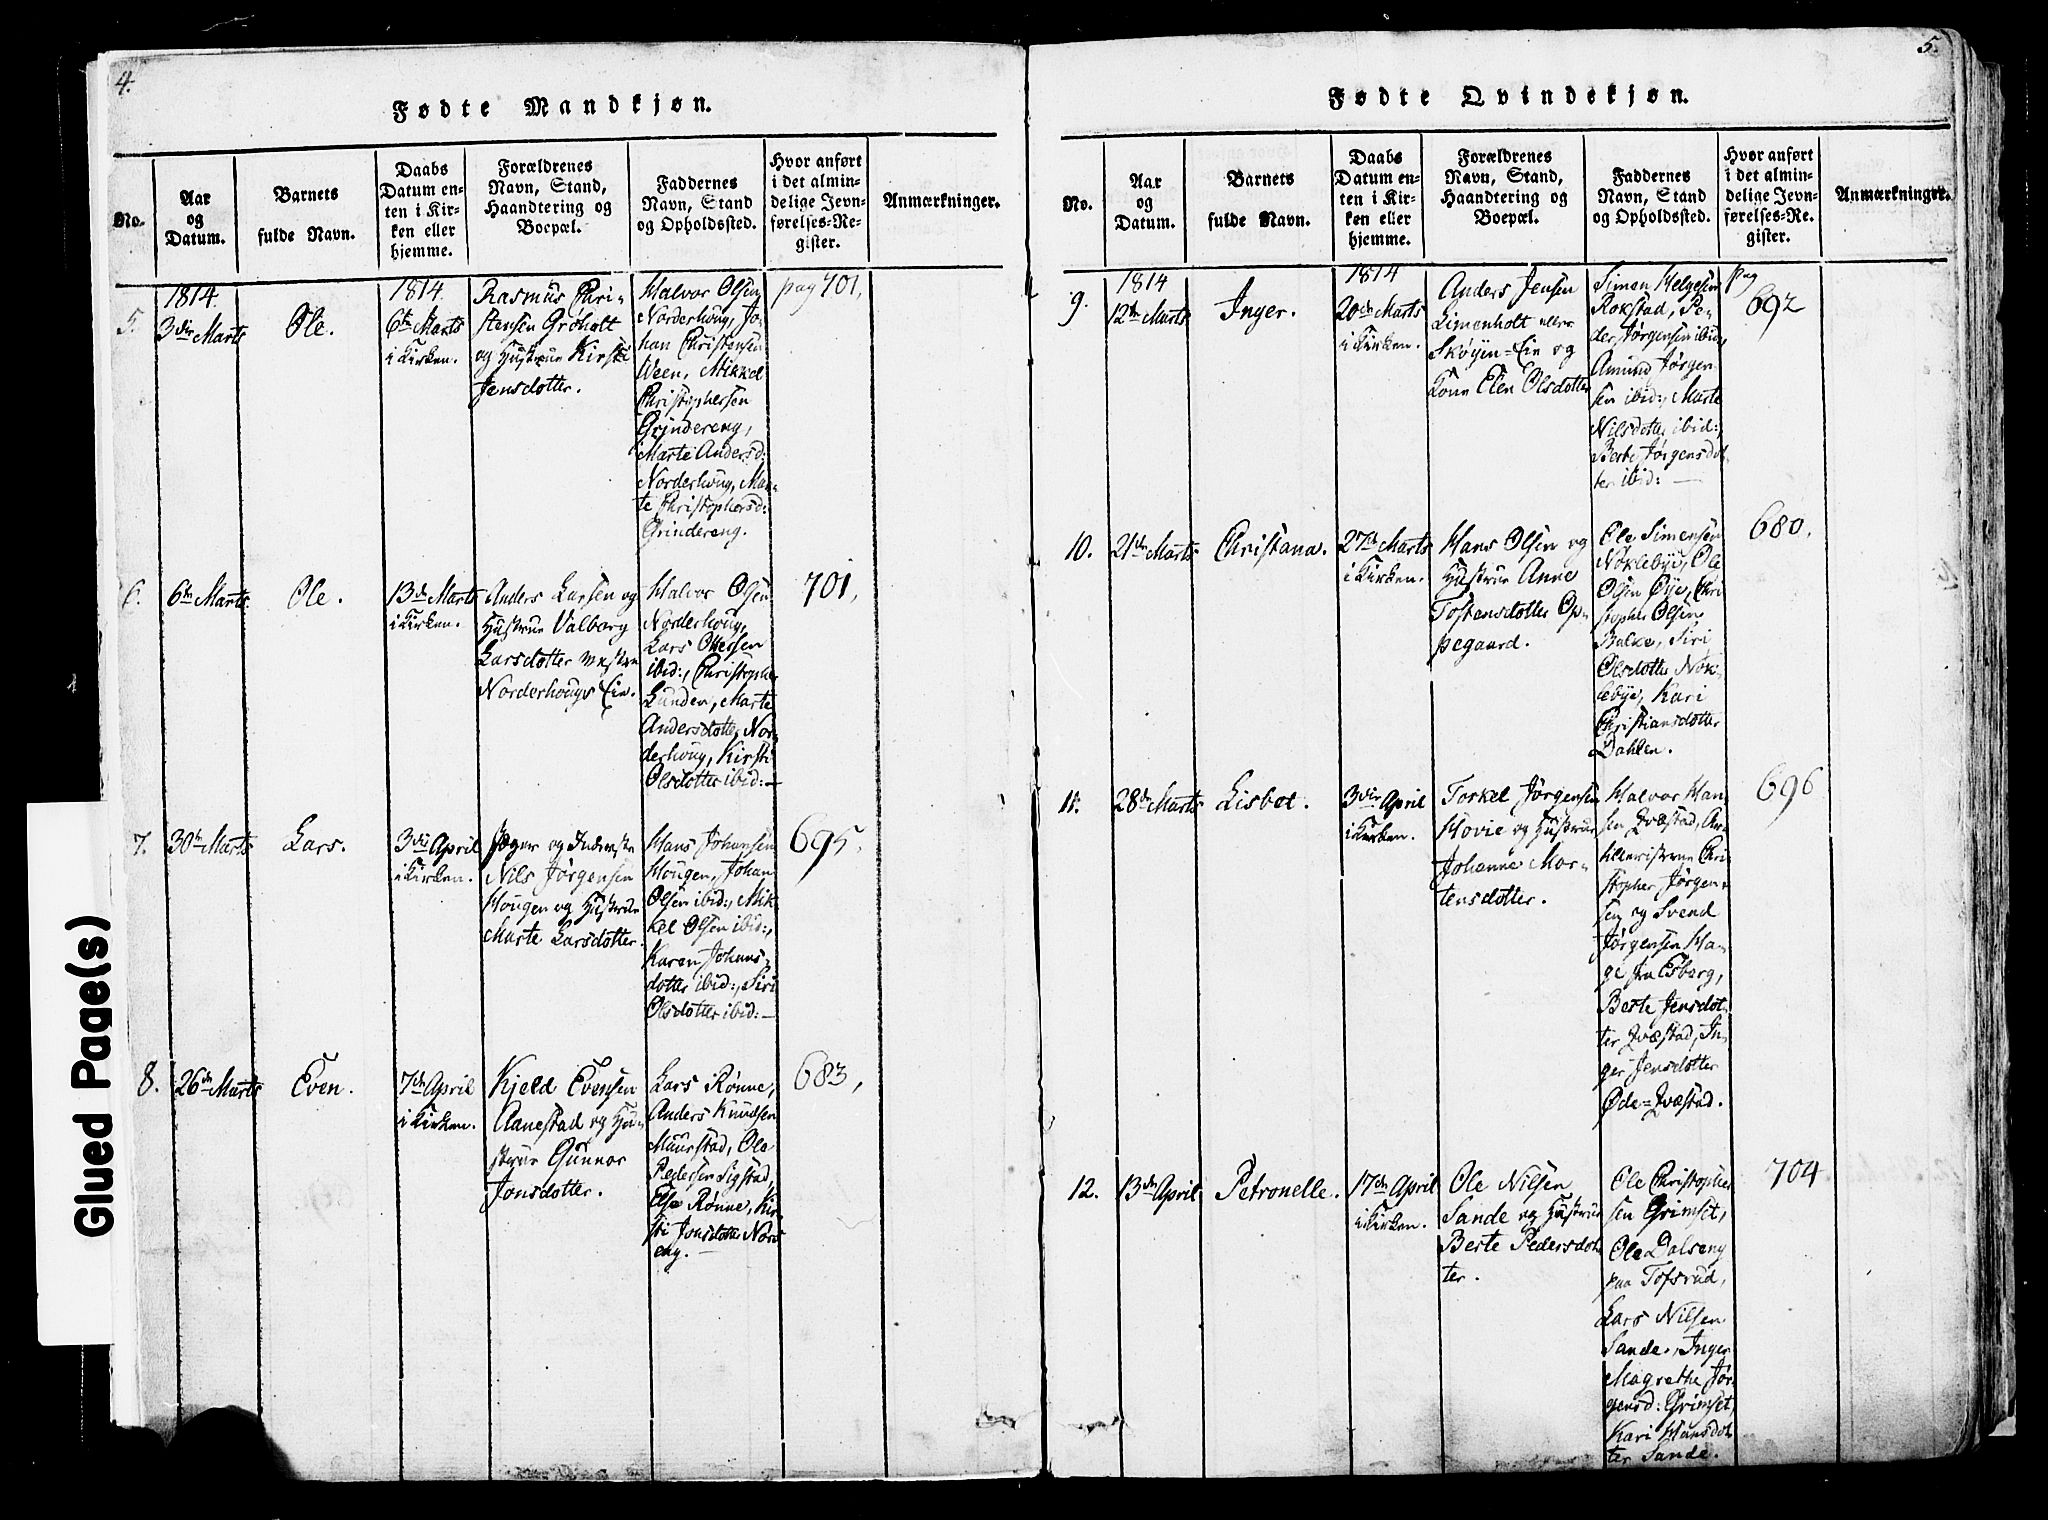 4.
Fødte Mandkjøn.
No.
Aar
og
Datum.
Barnets
fulde Navn.
Daabs
Datum en-
ten i Kir-
ken eller
hjemme.
Forældrenes
Navn, Stand,
Haandtering og
Boepæl.
Faddernes
Navn, Stand
og Opholdssted.
Hvor anført
i det almin-
delige Jevn-
førelses-Re-
gister.
Anmærkninger.
5.
1814.
3die Marts
Ole.
1814.
6te Marts
i Kirken.
Rasmus Chri-
stensen Grøholt
og Hustrue Kirsti
Jensdotter.
Halvor Olsen
Norderhoug, Jo-
han Christensen
Ween, Mikkel
Christophersen
Grindereng,
Marte Andersd:
Norderhoug, Mar-
te Christophersd:
Grindereng.
pag 701,
6.
6te Marts
Ole.
13de Marts
i Kirken.
Anders Larsen og
Hustrue Valborg
Larsdotter westre
Norderhougs Eie.
Halvor Olsen
Norderhoug,
Lars Ottersen
ibid:, Christopher
Lunden, Marte
Andersdotter Nor-
derhoug, Kirsti
Olsdotter ibid:—
701,
7.
30te Marts
Lars.
3die April
i Kirken.
Jæger og Inderste
Nils Jørgensen
Hougen og Hustrue
Marte Larsdotter.
Hans Johansen
Hougen, Johan
Olsen ibid:, Mik-
kel Olsen ibid:,
Karen Johans-
dotter ibid:, Siri
Olsdotter ibid:—
695,
8.
26de Marts
Even.
7de April
i Kirken.
Kjeld Evensen
Aanestad og Hu-
strue Gunnor
Jonsdotter.
Lars Rønne,
Anders Knudsen
Muurstad, Ole
Pedersen Sigstad,
Else Rønne, Kir-
sti Jonsdotter Nord-
eng.—
683,
Glued Page(s)
5.
Fødte Qvindekjøn.
No.
Aar
og
Datum.
Barnets
fulde Navn.
Daabs
Datum en-
ten i Kir-
ken eller
hjemme.
Forældrenes
Navn, Stand,
Haandtering og
Boepæl.
Faddernes
Navn, Stand
og Opholdssted.
Hvor anført
i det almin-
delige Jevn-
førelses-Re-
gister.
Anmærkninger.
9.
1814
12te Marts
Inger.
1814
20de Marts
i Kirken.
Anders Jensen
Limenholt eller
Skøyen=Eie og
Kone Elen Olsdotter
Simen Helgesen
Rokstad, Pe-
der Jørgensen ibid,
Amund Jørgen-
sen ibid:, Marte
Nilsdotter ibid:,
Berte Jørgensdot-
ter ibid:—
pag
692
10.
21de Marts
Christana.
27de Marts
i Kirken.
Hans Olsen og
Hustrue Anne
Tostensdotter Op-
pegaard.
Ole Simensen
Nøklebye, Ole
Olsen Øye, Chri-
stopher Olsen
Balke, Siri
Olsdotter Nøk-
lebye, Kari
Christiansdotter
Dahlen.
680,
11.
28de Marts
Lisbet.
3die April
i Kirken.
Torkel Jørgensen
Hovie og Hustrue
Johanne Mor-
tensdotter.
Halvor Han-
sen Qvæstad, Ar-
tilleristerne Chri-
stopher Jørgen-
sen og Svend
Jørgensen Ha-
ge fra Esberg,
Berte Jensdot-
ter Qvæstad, In-
ger Jensdotter
Øde=Qvæstad.
696
12.
13de April
Petronelle.
17de April
i Kirken.
Ole Nilsen
Sande og Hustrue
Berte Pedersdot-
ter.
Ole Christopher-
sen Grimset,
Ole Dalseng
paa Tofsrud,
Lars Nilsen
Sande, Inger
Magrethe Jør-
gensd: Grimset,
Kari Hansdot-
ter Sande.
704